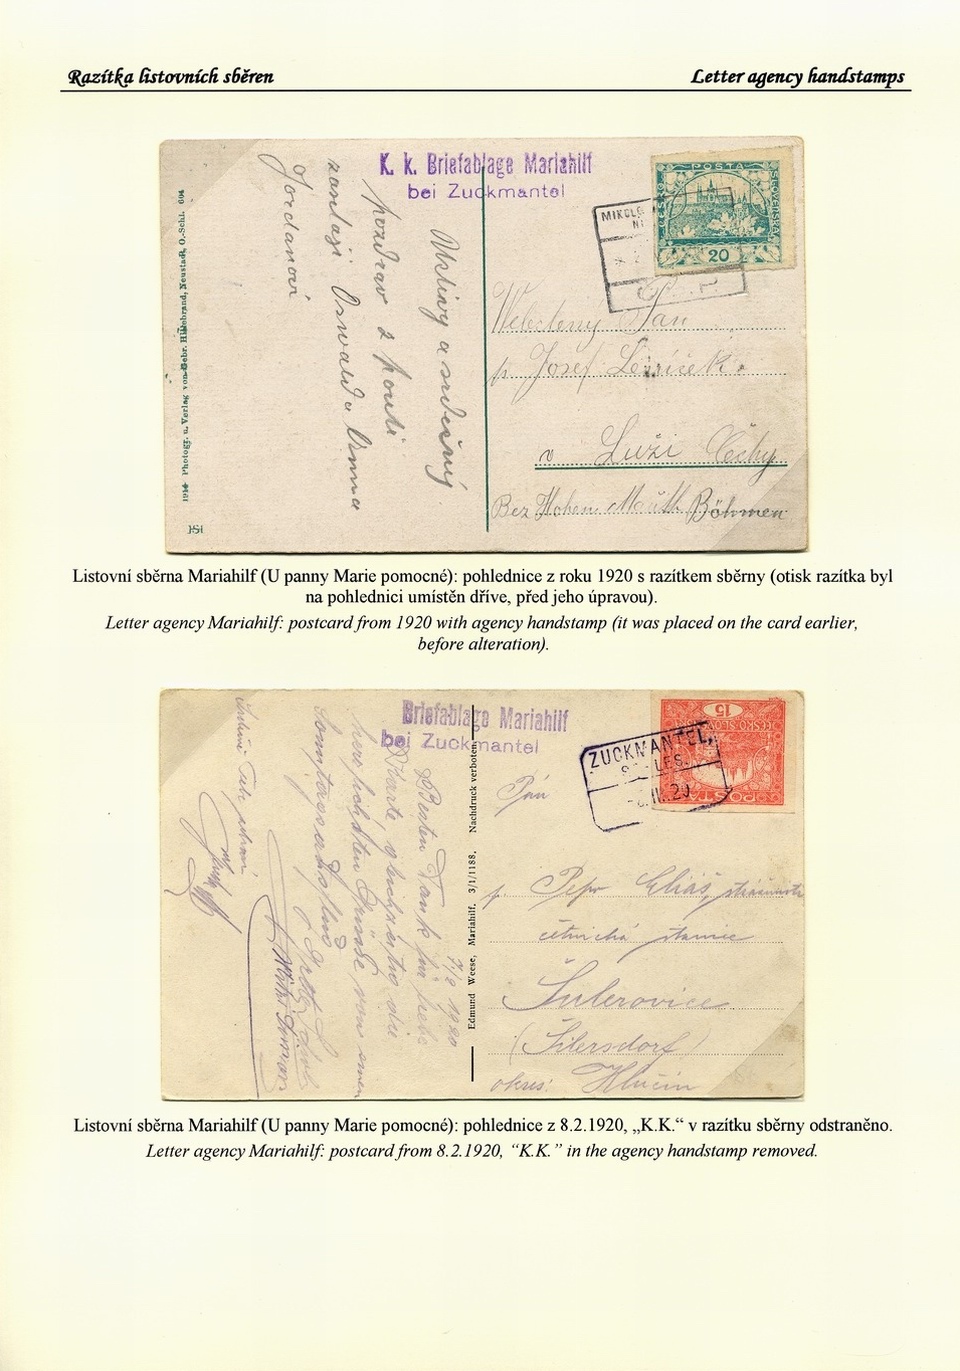 Razítka listovních sběren
Letter agency handstamps
K. k. Briefablage Mariahilf
bei Zuckmantel
POSTA
ČESKO
SLOVENSKÁ
20
MIKOL
Uctivý a srdečný
pozdrav z pouti
zasílají Oswald a Anna
Jordanovi
1914 Photogr. u. Verlag von Gebr. Hildebrand, Neustadt, O.-Schl. 604
Pan
p. Josef
v Luži Čechy
Bez Hohenmauth Böhmen
Listovní sběrna Mariahilf (U panny Marie pomocné): pohlednice z roku 1920 s razítkem sběrny (otisk razítka byl
na pohlednici umístěn dříve, před jeho úpravou).
Letter agency Mariahilf: postcard from 1920 with agency handstamp (it was placed on the card earlier,
before alteration).
Briefablage Mariahilf
bei Zuckmantel
15
ZUCKMANTEL
Edmund Weese, Mariahilf. 3/1/1188. Nachdruck verboten.
7/2 1920
Besten Dank für liebe
Karte,
herzlichsten Grüsse von
Pán
p. Pepa Eliáš,
četnická stanice
Šilerovice
(Šilersdorf)
okres: Hlučín
Listovní sběrna Mariahilf (U panny Marie pomocné): pohlednice z 8.2.1920, „K.K.“ v razítku sběrny odstraněno.
Letter agency Mariahilf: postcard from 8.2.1920, “K.K.” in the agency handstamp removed.